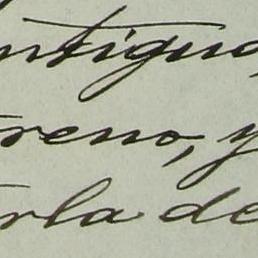 ntigua,
reno, y
rla de